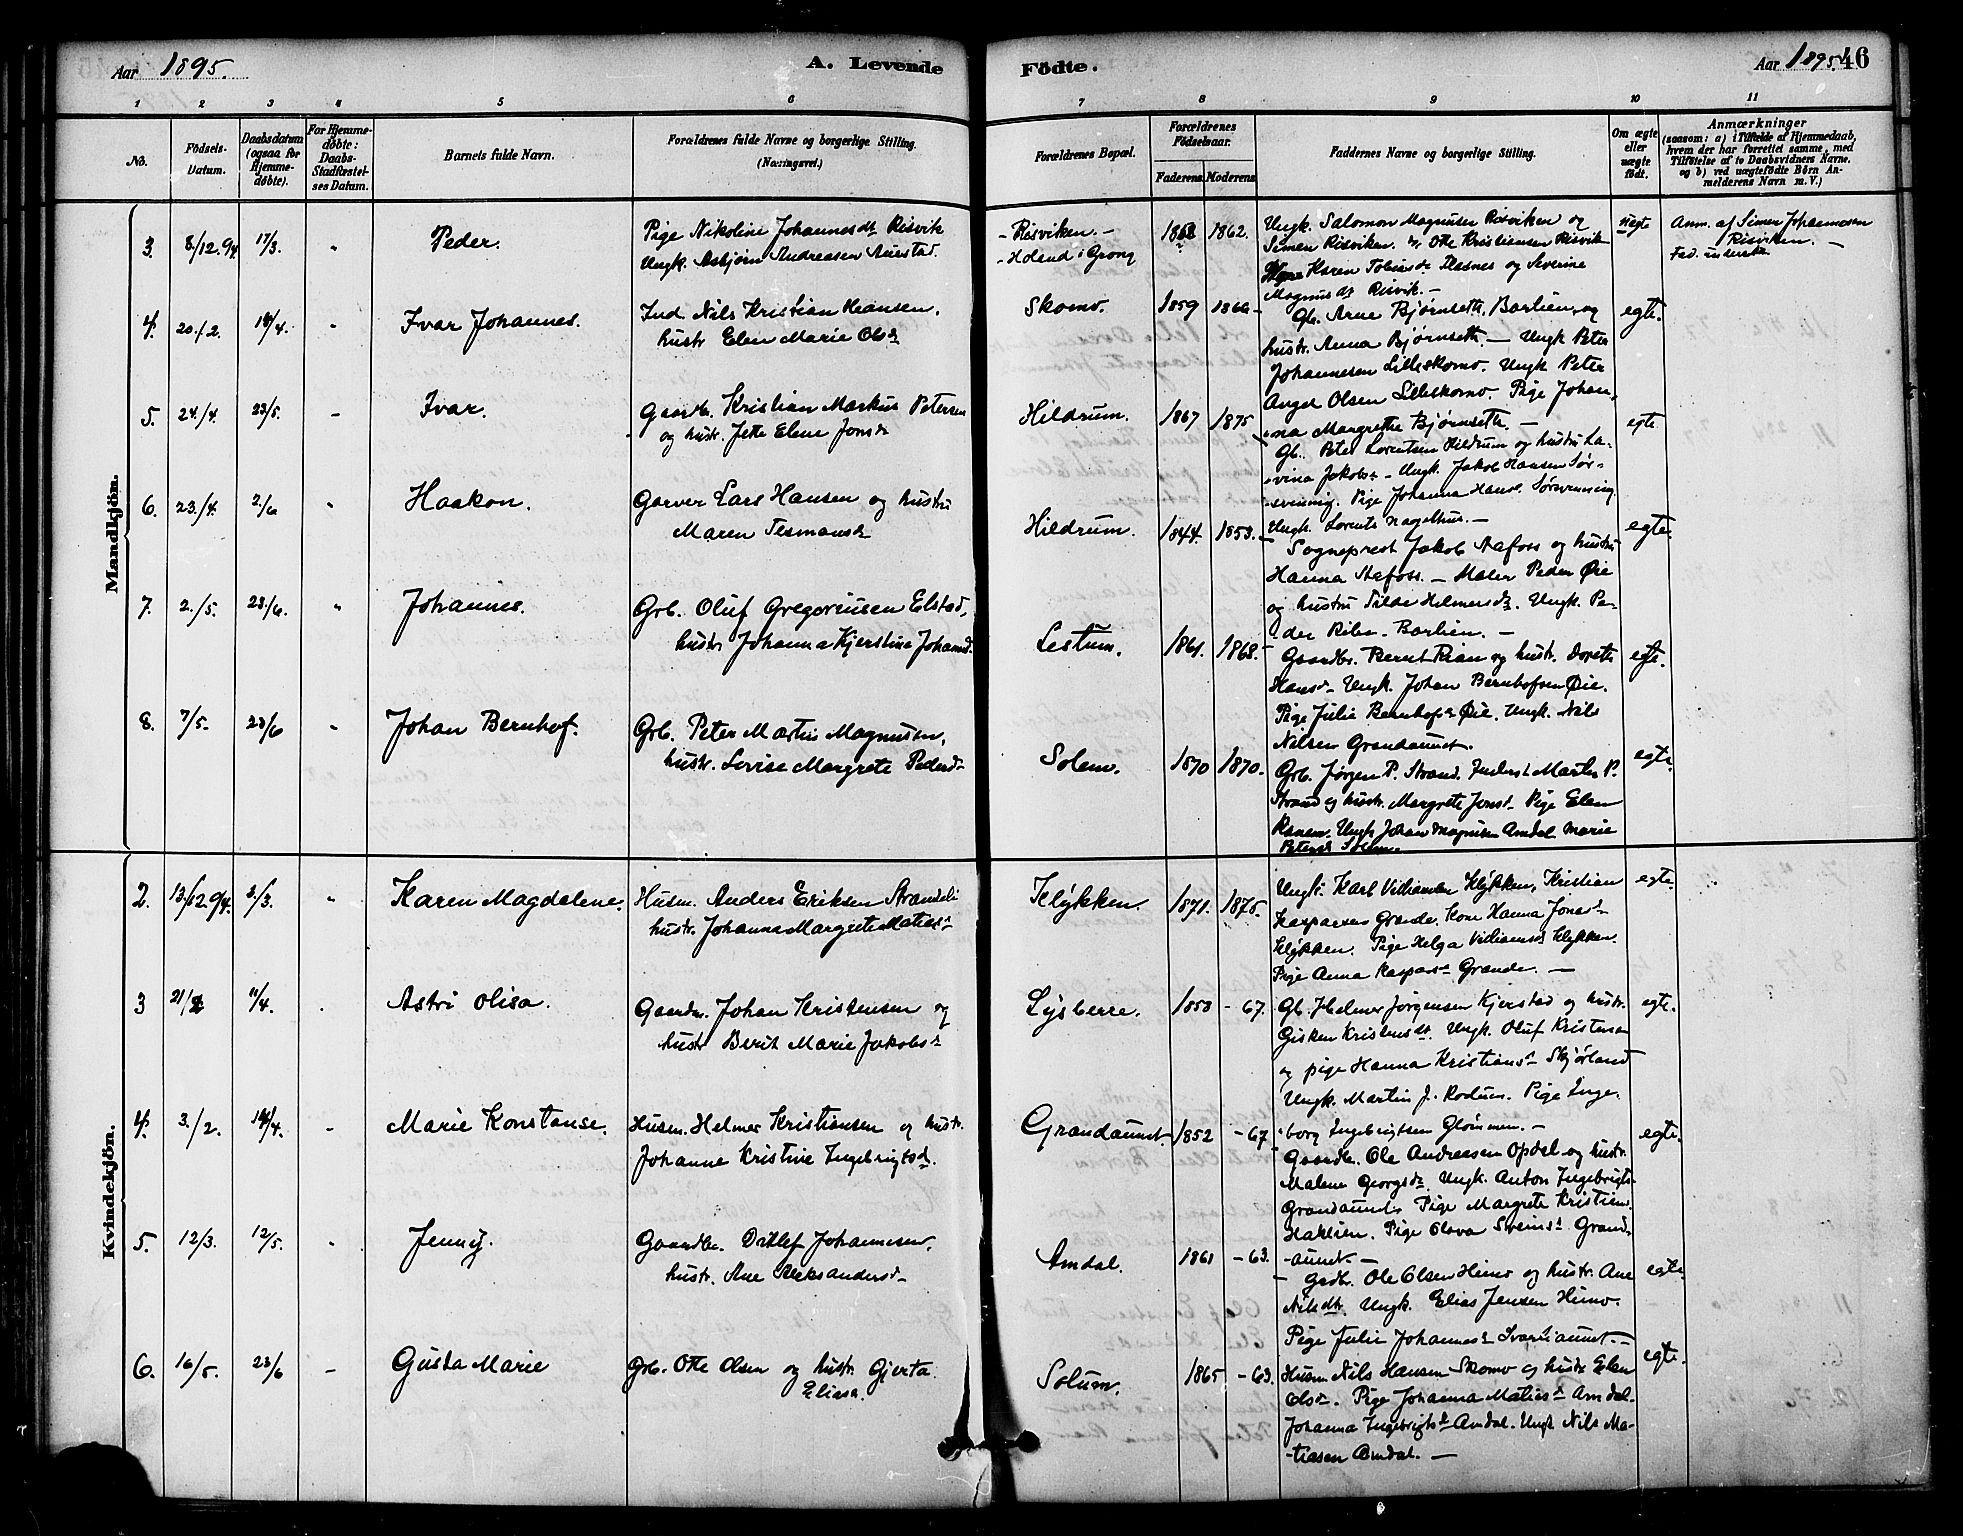 Aar 1895.
A. Levende
Födte.
Aar 1895. 46
1 2 3 4 5 6 7 8 9 10 11
No.
Födsels-Datum.
Daabsdatum (ogsaa for Hjemme-döbte).
For Hjemme-döbte: Daabs-Stadfæstel-ses Datum.
Barnets fulde Navn.
Forældrenes fulde Navne og borgerlige Stilling.
(Næringsvei.)
Forældrenes Bopæl.
Forældrenes Födselsaar.
Faderens Moderens
Faddernes Navne og borgerlige Stilling.
Om ægte eller uægte födt.
Anmærkninger
(saasom: a) i Tilfælde af Hjemmedaab,
hvem der har forrettet samme, med
Tilföielse af to Daabsvidners Navne.
og b) ved uægtefödte Börn An-
melderens Navn m. V.)
Mandkjön.
3. 8/12.94 17/3. " Peder.
Pige Nikoline Johannesdt Risvik
Ungk. Asbjørn Andreasen Aurstad.
- Risviken. -
- Holand i Grong
1862.
Ungk. Salomon Magnusen Risviken og
Simen Risviken. Otte Kristiansen Risvik
Karen Tobiasdt Flasnes og Severine
Magnusdt Risvik. -
uegte
Anm. af Simen Johannesen
Risviken. -
4. 20./2. 14/4. " Ivar Johannes.
Ind. Nils Kristian Hansen,
hustr Elen Marie Olsd
Skomo. 1859 1866 -
Gb. Arne Bjørnseth, Barlien, og
hustr. Anna Bjørnseth. - Ungk Peter
Johannesen Lilleskomo. Ungk Peter
Angel Olsen Lilleskomo. Pige Johan,
ina Margrethe Bjørnseth. -
egte.
5. 24./4. 23/5. - Ivar.
Gaardb. Kristian Markus Petersen
og hustr. Jette Elene Jonsd
Hildrum. 1867 1875
Gb. Peter Lorentsen Hildrum og hustru La-
vina Jakobsd - Ungk. Jakob Hansen Sør-
svenning. Pige Johanna Hansd. Sørsvenning
Ungk. Lorents Nagelhus. -
egte
6. 23./4. 2/6 " Haakon.
Garver Lars Hansen og hustru
Maren Tesmansd
Hildrum. 1844. 1853. -
Sogneprest Jakob Aafoss og hustru
Hanna Aafoss. - Maler Peder Øie
og hustru Tilda Helmersd. Ungk. Pe-
der Barlien. -
egte.
7. 2./5. 23./6. " Johannes.
Grb. Oluf Gregoriusen Elstad,
hustr Johanna Kjerstina Johansd.
Lestum. 1861. 1868. -
Gaardbr. Bernt Rian og hustr. Dorett
Hansd - Ungk. Johan Bernhofsen Øie.
Pige Julie Bernhofsd Øie. Ungk. Nils
Nilsen Grandaunet.
egte.
8. 7/5. 23/6 " Johan Bernhof.
Grb. Peter Martin Magnusen,
hustr. Lovise Margrete Pedersd -
Solem. 1870 1870.
Grb. Jørgen P. Strand. Martin P.
Strand og hustr. Margrete Jonsd - Pige Elen
Ungk Johan Magnusen Amdal Marie
Petersd Solem.
egte.
Kvindekjön.
2. 13/12.94. 3/3. " Karen Magdalene.
Husm. Anders Eriksen Strandli
hustr. Johanna Margrete Matiasd
Kløkken. 1871. 1875.
Ungk. Karl Villiamsen Kløkken, Kristian
Kasparsen Grande. Kone Hanna Jonasd
Kløkken. Pige Helga Villiamsd Kløkken.
Pige Anna Kasparsd Grande. -
egte.
3 21/2 11/4. . Astri Olisa.
Gaardm. Johan Kristensen og
hustr Berit Marie Jakobsd
Lysberre. 1853 - 67.
Gb. Helmer Jørgensen Kjerstad og hustr.
Gisken Kristensdt. Ungk. Oluf Kristensen
og pige Hanna Kristiansd Skjørland
Ungk. Martin J. Rodum. Pige Inge-
borg Ingebrigtsen Glømmen. -
egte.
4. 3./2. 14/4. - Marie Konstanse.
Husm. Helmer Kristiansen og hustr.
Johanne Kristine Ingebrigtsd.
Grandaunet. 1852 - 67
Gaardb. Ole Andreasen Opdal og hustr.
Malene Georgsd. Ungk. Anton Ingebrigts-
Grandaunet. Pige Margrete Kristiens
Haklien. Pige Oleva Sveinsd Grand-
aunet. -
egte.
5. 12/3. 12/5. " Jenny.
Gaardbr. Ditlef Johannesen,
hustr. Ane Aleksandersd -
Amdal. 1861 - 63.
- Grdbr. Ole Olsen Himo og hustr. Ane
Nilsdt. Ungk. Elias Jensen Himo.
Pige Julie Johannesd Svarliaunet. -
egte.
6. 16/5. 23/6 - Gusta Marie
Grb. Otte Olsen og hustr. Gjerta
Eliasd.
Solum. 1865 - 63.
Husm Nils Hansen Skomo og hustr Elen
Olsd. Pige Johanna Matiasd Amdal.
Johanna Ingebrigtsd Amdal. Ungk Nils Ma-
tiasen Amdal. -
egte.